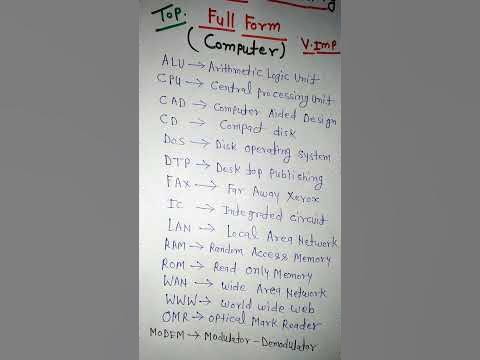 Top. Full Form
(Computer) V.Imp
ALU → Arithmetic Logic Unit
CPU → Central processing Unit
CAD → Computer Aided Design
CD → Compact disk
DOS → Disk operating system
DTP → Desk top publishing
FAX → Far Away Xerox
IC → Integrated circuit
LAN → Local Area Network
RAM → Random Access Memory
ROM → Read only Memory
WAN → Wide Area Network
WWW → world wide web
OMR → optical Mark Reader
MODEM → Modulator - Demodulator